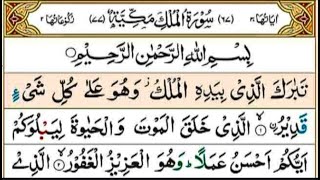 اٰیَاتُهَا ٣٠ (٦٧) سُوْرَةُ الْمُلْكِ مَكِّیَّةٌ (٧٧) رُكُوْعَاتُهَا ٢
بِسْمِ اللّٰهِ الرَّحْمٰنِ الرَّحِیْمِ
تَبٰرَكَ الَّذِیْ بِیَدِهِ الْمُلْكُ ؗ وَهُوَ عَلٰى كُلِّ شَیْءٍ
قَدِیْرُۙ ۝١ الَّذِیْ خَلَقَ الْمَوْتَ وَالْحَیٰوةَ لِیَبْلُوَكُمْ
اَیُّكُمْ اَحْسَنُ عَمَلًاؕ وَهُوَ الْعَزِیْزُ الْغَفُوْرُۙ ۝٢ الَّذِیْ